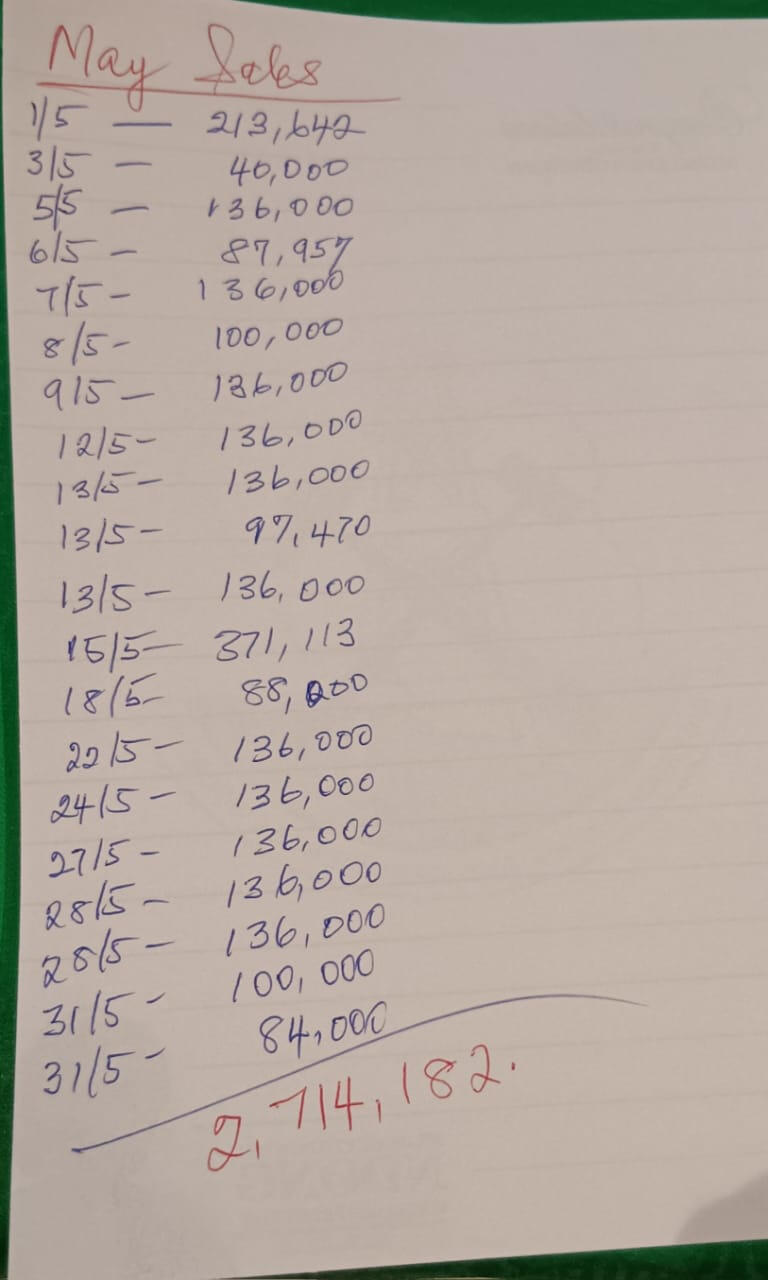 May Sales
1/5 — 213,642
3/5 — 40,000
5/5 — 136,000
6/5 — 87,957
7/5 — 136,000
8/5 — 100,000
9/5 — 136,000
12/5 — 136,000
13/5 — 136,000
13/5 — 97,470
13/5 — 136,000
15/5 — 371,113
18/5 — 88,000
22/5 — 136,000
24/5 — 136,000
27/5 — 136,000
28/5 — 136,000
28/5 — 136,000
31/5 — 100,000
31/5 — 84,000
2,714,182.